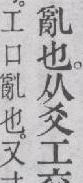 亂也。从爻工交
。工口亂也。又